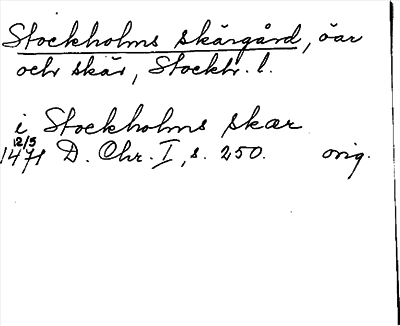 Stockholms skärgård, öar
och skär, Stockh. l.
i Stockholms skær
12/5
1471 D. Chr. I, s. 250. orig.